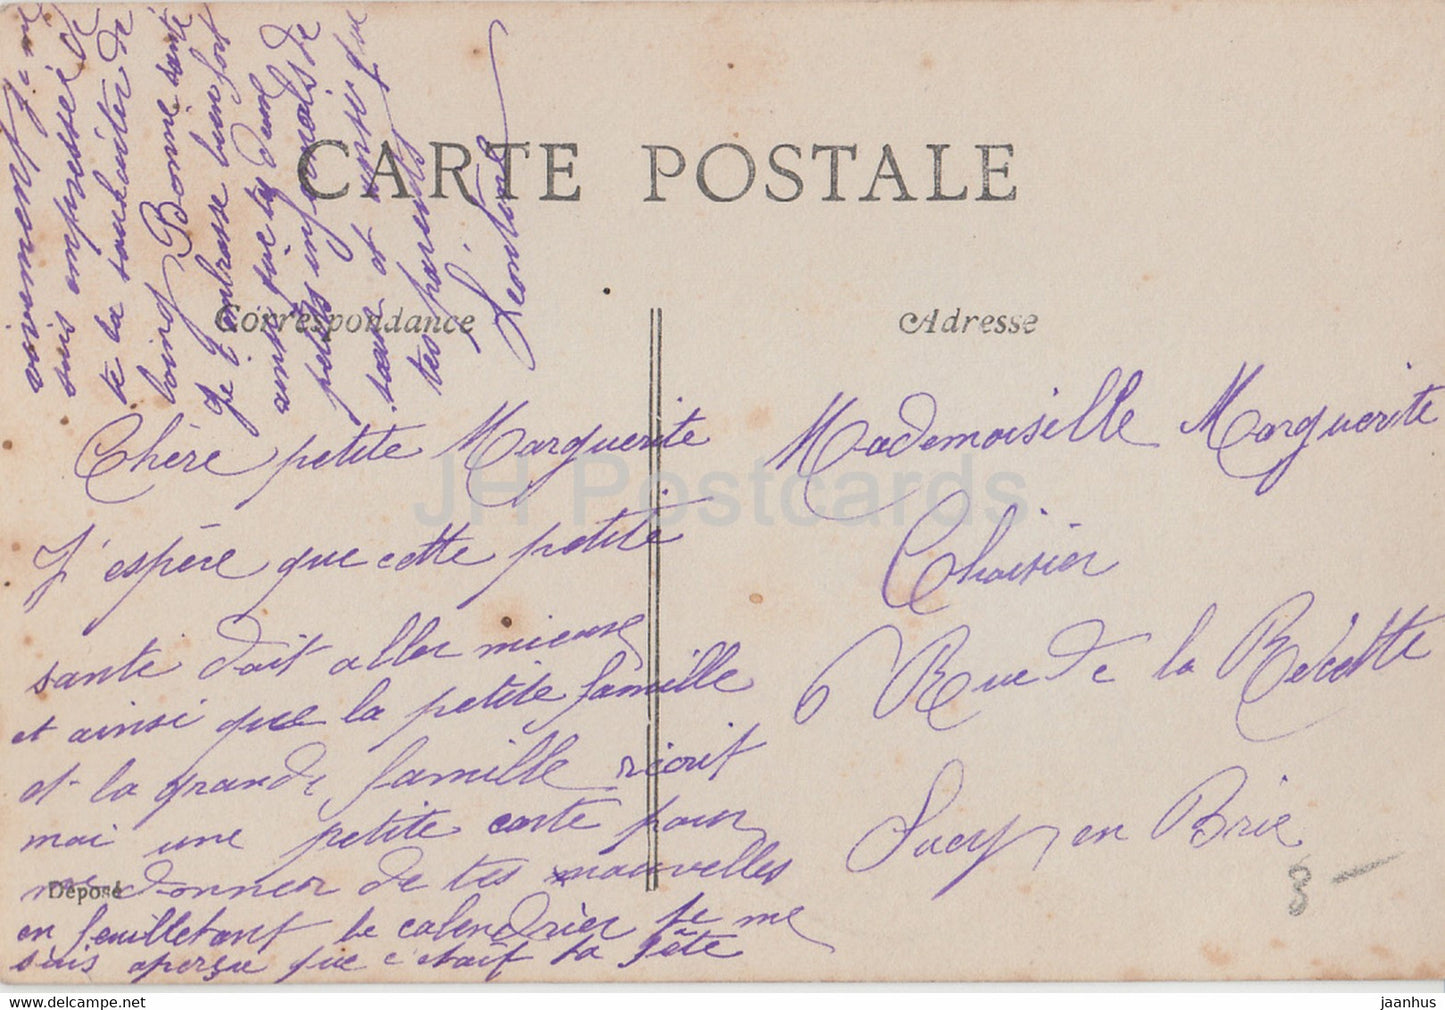 CARTE POSTALE
Correspondance
Adresse
Chère petite Marguerite
J'espère que cette petite
santé doit aller mieux
et ainsi que la petite famille
et la grande famille écrit
moi une petite carte pour
me donner de tes nouvelles
en feuilletant le calendrier je me
suis aperçue que c'était ta fête
je me
suis empressée de
te la souhaiter de
loin Bonne santé
Je t'embrasse bien fort
ainsi que ta
petits
et ainsi que
tes parents
Léontine
Mademoiselle Marguerite
Choisier
6 Rue de la Recette
Sucy en Brie
Déposé
8 -
JH Postcards
jaanhus